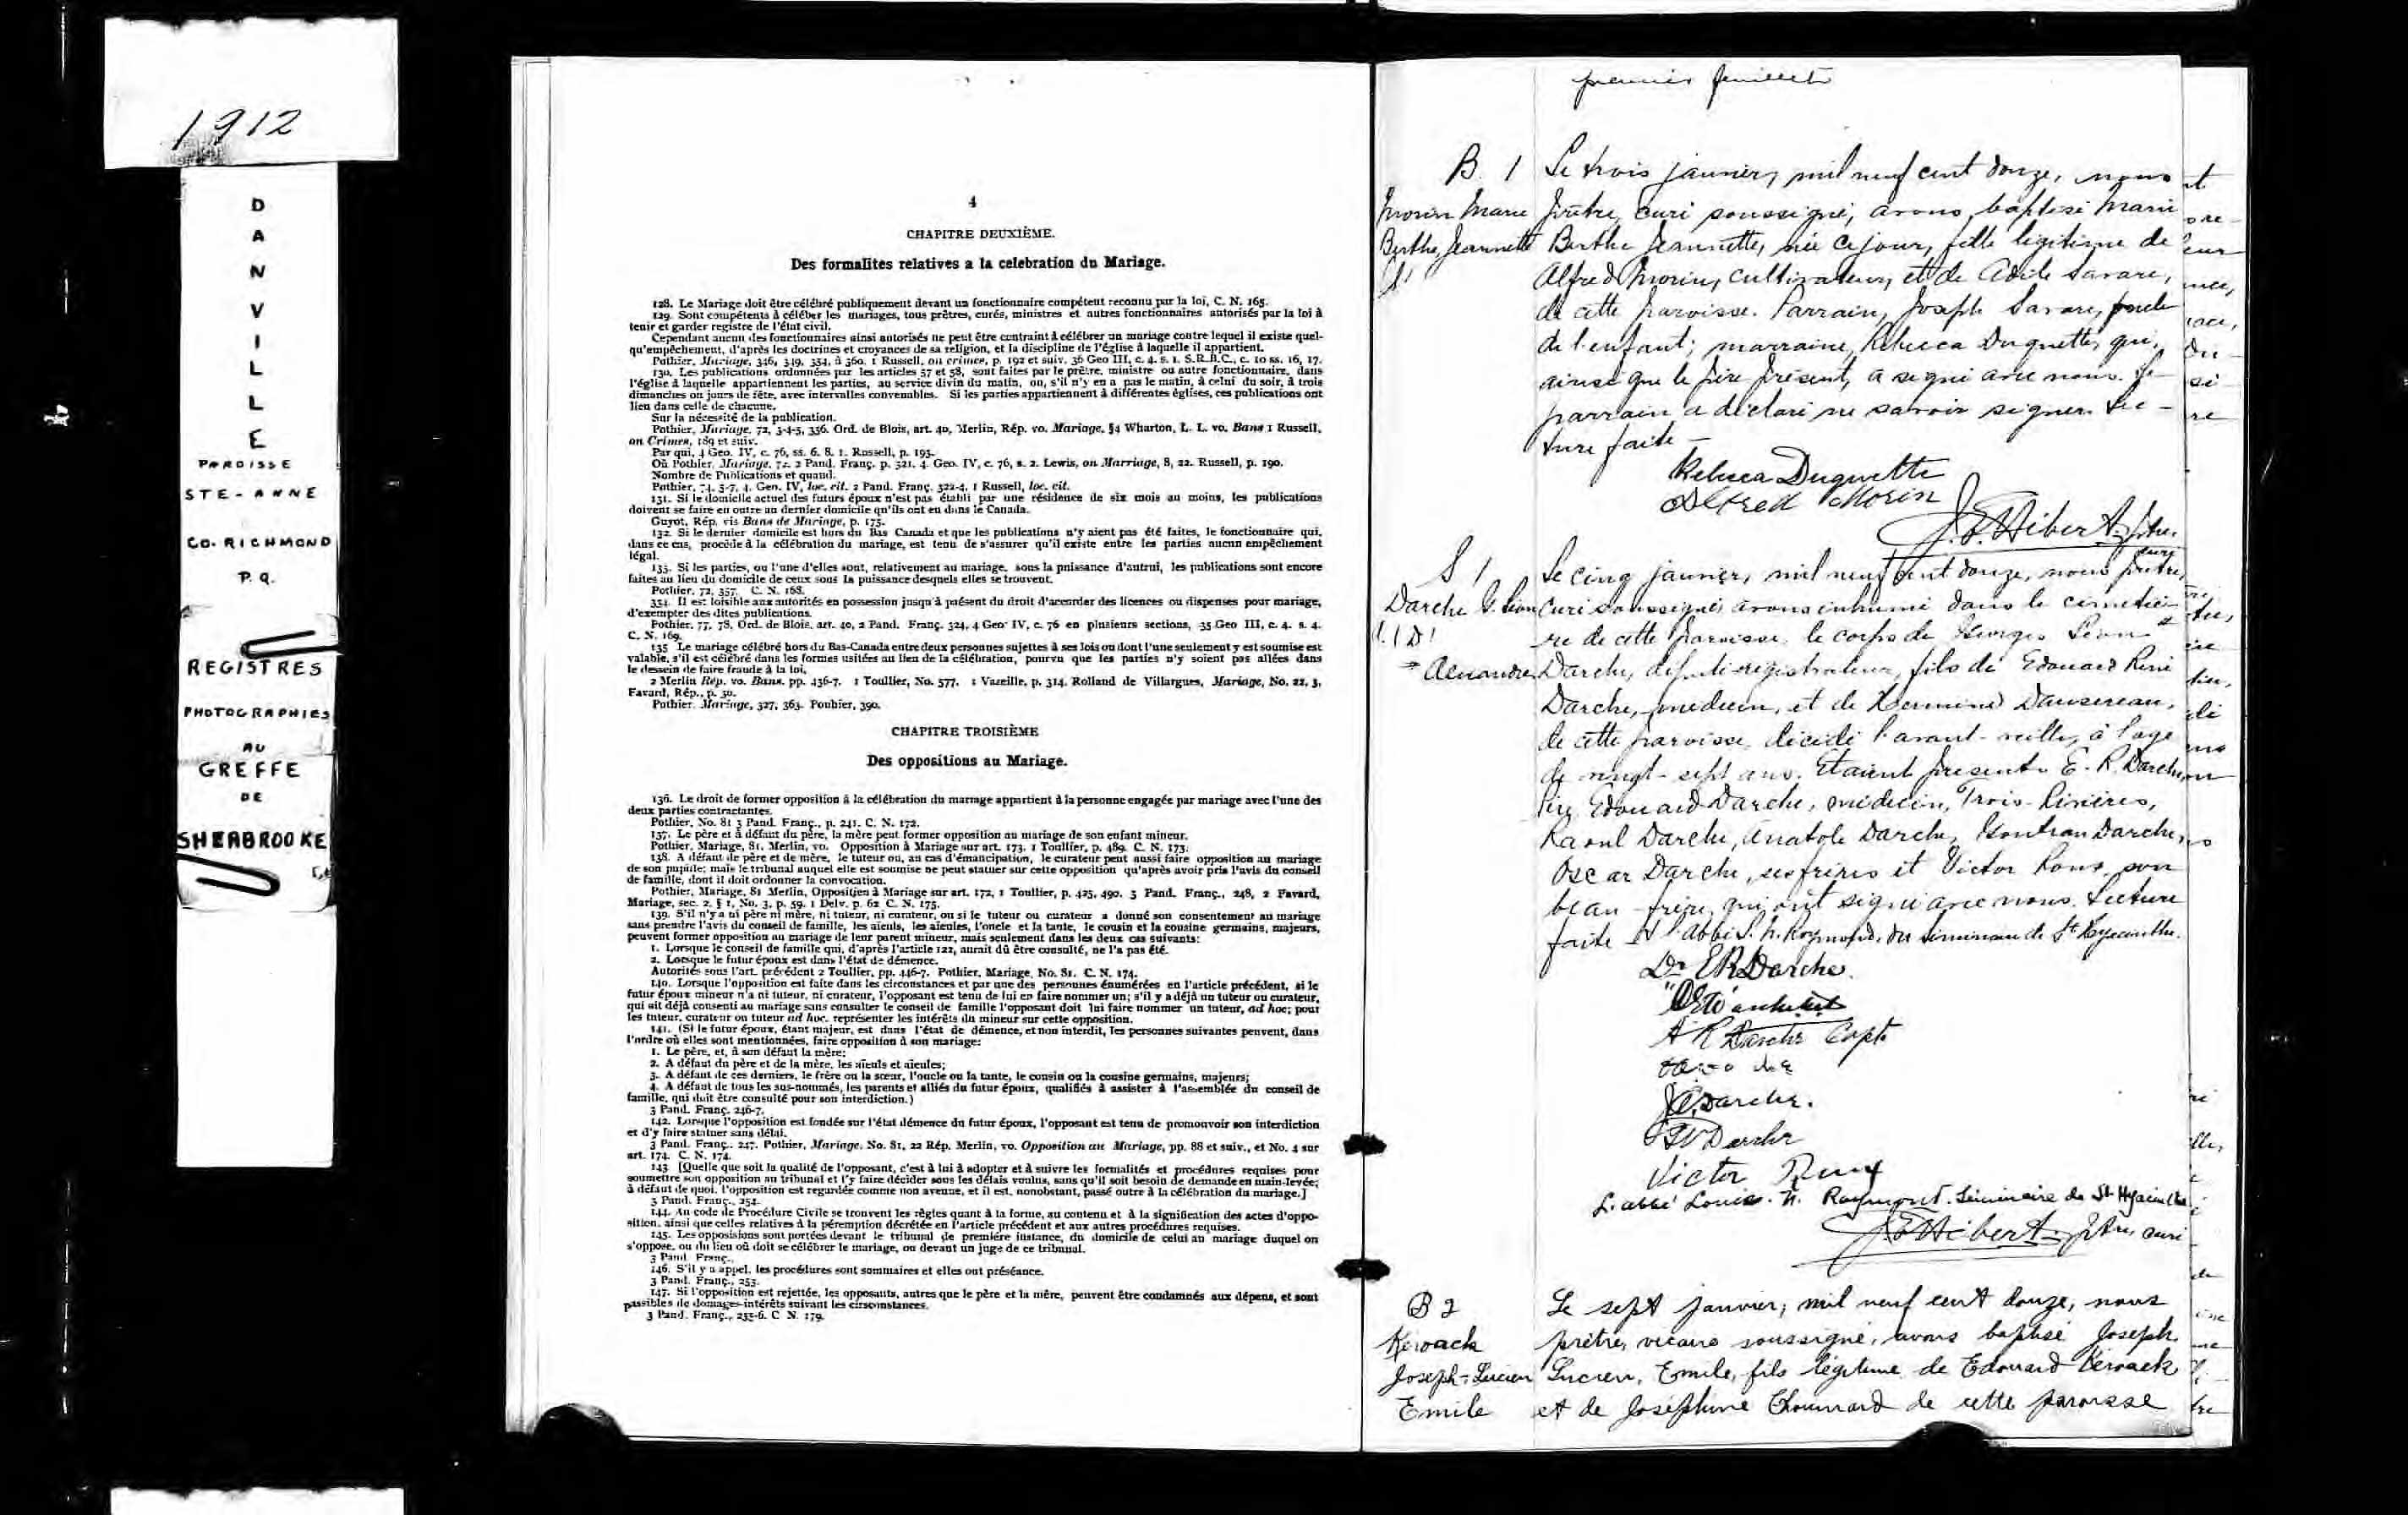 1912
DANVILLE
PAROISSE
STE-ANNE
CO. RICHMOND
P.Q.
REGISTRES
PHOTOGRAPHIES
AU
GREFFE
DE
SHERBROOKE
4
CHAPITRE DEUXIÈME.
Des formalites relatives a la celebration du Mariage.
128. Le Mariage doit être célébré publiquement devant un fonctionnaire compétent reconnu par la loi, C. N. 165.
129. Sont compétents à céléber les mariages, tous prêtres, curés, ministres et autres fonctionnaires autorisés par la loi à
tenir et garder registre de l'état civil.
Cependant aucun des fonctionnaires ainsi autorisés ne peut être contraint à célébrer un mariage contre lequel il existe quel-
qu'empêchement, d'après les doctrines et croyances de sa religion, et la discipline de l'église à laquelle il appartient.
Pothier, Mariage, 346, 349, 354, à 360. 1 Russell, on crimes, p. 192 et suiv. 36 Geo III, c. 4. s. 1. S.R.B.C., c. 10 ss. 16, 17.
130. Les publications ordonnées par les articles 57 et 58, sont faites par le prêtre, ministre ou autre fonctionnaire, dans
l'église à laquelle appartiennent les parties, au service divin du matin, ou, s'il n'y en a pas le matin, à celui du soir, à trois
dimanches ou jours de fête, avec intervalles convenables. Si les parties appartiennent à différentes églises, ces publications ont
lieu dans celle de chacune.
Sur la nécessité de la publication.
Pothier, Mariage, 72, 3-4-5, 356. Ord. de Blois, art. 40, Merlin, Rép. vo. Mariage, §4 Wharton, L. L. vo. Bans 1 Russell,
on Crimes, 189 et suiv.
Par qui, 4 Geo. IV, c. 76, ss. 6. 8. 1. Russell, p. 195.
Où Pothier, Mariage, 72. 2 Pand. Franç. p. 321. 4. Geo. IV, c. 76, s. 2. Lewis, on Marriage, 8, 22. Russell, p. 190.
Nombre de Publications et quand.
Pothier, 74, 5-7, 4. Gen. IV, loc. cit. 2 Pand. Franç. 322-4, 1 Russell, loc. cit.
131. Si le domicile actuel des futurs époux n'est pas établi par une résidence de six mois au moins, les publications
doivent se faire en outre au dernier domicile qu'ils ont eu dans le Canada.
Guyot, Rép. vis Bans de Mariage, p. 175.
132. Si le dernier domicile est hors du Bas Canada et que les publications n'y aient pas été faites, le fonctionnaire qui,
dans ce cas, procède à la célébration du mariage, est tenu de s'assurer qu'il existe entre les parties aucun empêchement
légal.
133. Si les parties, ou l'une d'elles sont, relativement au mariage, sous la puissance d'autrui, les publications sont encore
faites au lieu du domicile de ceux sous la puissance desquels elles se trouvent.
Pothier, 72, 357. C. N. 168.
334. Il est loisible aux autorités en possession jusqu'à présent du droit d'accorder des licences ou dispenses pour mariage,
d'exempter des dites publications.
Pothier. 77, 78, Ord. de Blois, art. 40, 2 Pand. Franç. 324, 4 Geo' IV, c. 76 en plusieurs sections, 35 Geo III, c. 4. s. 4.
C. N. 169.
135 Le mariage célébré hors du Bas-Canada entre deux personnes sujettes à ses lois ou dont l'une seulement y est soumise est
valable, s'il est célébré dans les formes usitées au lieu de la célébration, pourvu que les parties n'y soient pas allées dans
le dessein de faire fraude à la loi.
2 Merlin Rép. vo. Bans. pp. 436-7. 1 Toullier, No. 577. 1 Vazeille, p. 314. Rolland de Villargues, Mariage, No. 22, 3,
Favard, Rép., p. 30.
Pothier. Mariage, 327, 363. Pouhier, 390.
CHAPITRE TROISIÈME
Des oppositions au Mariage.
136. Le droit de former opposition à la célébration du marrage appartient à la personne engagée par mariage avec l'une des
deux parties contractantes.
Pothier, No. 81 3 Pand. Franç., p. 241. C. N. 172.
137. Le père et à défaut du père, la mère peut former opposition au mariage de son enfant mineur.
Pothier, Mariage, 81. Merlin, vo. Opposition à Mariage sur art. 173. 1 Toullier, p. 489. C. N. 173.
138. A défaut de père et de mère, le tuteur ou, au cas d'émancipation, le curateur peut aussi faire opposition au mariage
de son pupille; mais le tribunal auquel elle est soumise ne peut statuer sur cette opposition qu'après avoir pris l'avis du conseil
de famille, dont il doit ordonner la convocation.
Pothier, Mariage, 81 Merlin, Opposition à Mariage sur art. 172, 1 Toullier, p. 425, 490. 3 Pand. Franç., 248, 2 Favard,
Mariage, sec. 2. § 1, No. 3. p. 59. 1 Delv. p. 62 C. N. 175.
139. S'il n'y a ni père ni mère, ni tuteur, ni curateur, ou si le tuteur ou curateur a donné son consentement au mariage
sans prendre l'avis du conseil de famille, les aïeuls, les aïeules, l'oncle et la tante, le cousin et la cousine germains, majeurs,
peuvent former opposition au mariage de leur parent mineur, mais seulement dans les deux cas suivants:
1. Lorsque le conseil de famille qui, d'après l'article 122, aurait dû être consulté, ne l'a pas été.
2. Lorsque le futur époux est dans l'état de démence.
Autorités sous l'art. précédent 2 Toullier, pp. 446-7. Pothier, Mariage, No. 81. C. N. 174.
140. Lorsque l'opposition est faite dans les circonstances et par une des personnes énumérées en l'article précédent, si le
futur époux mineur n'a ni tuteur, ni curateur, l'opposant est tenu de lui en faire nommer un; s'il y a déjà un tuteur ou curateur,
qui ait déjà consenti au mariage sans consulter le conseil de famille l'opposant doit lui faire nommer un tuteur, ad hoc; pour
les tuteur, curateur ou tuteur ad hoc. représenter les intérêts du mineur sur cette opposition.
141. (Si le futur époux, étant majeur, est dans l'état de démence, et non interdit, les personnes suivantes peuvent, dans
l'ordre où elles sont mentionnées, faire opposition à son mariage:
1. Le père, et, à son défaut la mère;
2. A défaut du père et de la mère, les aïeuls et aïeules;
3. A défaut de ces derniers, le frère ou la sœur, l'oncle ou la tante, le cousin ou la cousine germains, majeurs;
4. A défaut de tous les sus-nommés, les parents et alliés du futur époux, qualifiés à assister à l'assemblée du conseil de
famille, qui doit être consulté pour son interdiction.)
3 Pand. Franç. 246-7.
142. Lorsque l'opposition est fondée sur l'état démence du futur époux, l'opposant est tenu de promouvoir son interdiction
et d'y faire statuer sans délai.
3 Pand. Franç.. 247. Pothier, Mariage. No. 81, 22 Rép. Merlin, vo. Opposition au Mariage, pp. 88 et suiv., et No. 4 sur
art. 174. C. N. 174.
143 [Quelle que soit la qualité de l'opposant, c'est à lui à adopter et à suivre les formalités et procédures requises pour
soumettre son opposition au tribunal et l'y faire décider sous les délais voulus, sans qu'il soit besoin de demande en main-levée;
à défaut de quoi, l'opposition est regardée comme non avenue, et il est, nonobstant, passé outre à la célébration du mariage.]
3 Pand. Franç., 254.
144. Au code de Procédure Civile se trouvent les règles quant à la forme, au contenu et à la signification des actes d'oppo-
sition, ainsi que celles relatives à la péremption décrétée en l'article précédent et aux autres procédures requises.
145. Les oppositions sont portées devant le tribunal de première instance, du domicile de celui au mariage duquel on
s'oppose, ou du lieu où doit se célébrer le mariage, ou devant un juge de ce tribunal.
3 Pand. Franç.,
146. S'il y a appel, les procédures sont sommaires et elles ont préséance.
3 Pand. Franç., 253.
147. Si l'opposition est rejettée, les opposants, autres que le père et la mère, peuvent être condamnés aux dépens, et sont
passibles de domages-intérêts suivant les cirsconstances.
3 Pand. Franç., 255-6. C N. 179.
premier feuillet
B. 1
Morin Marie
Berthe, Jeannette
Le trois janvier, mil neuf cent douze, nous
prêtre, curé soussigné, avons baptisé Marie
Berthe Jeannette, née ce jour, fille légitime de
Alfred Morin, cultivateur, et de Adèle Savare,
de cette paroisse. Parrain, Joseph Savare, oncle
de l'enfant; marraine, Rébecca Duquette, qui,
ainsi que le père présent, a signé avec nous. Le
parrain a déclaré ne savoir signer. Lec-
ture faite -
Rebeca Duquette
Alfred Morin
J. E. Hébert, ptre,
curé
S 1
Darche G. Léon
Alexandre
Le cinq janvier, mil neuf cent douze, nous prêtre,
curé soussigné, avons inhumé dans le cimetiè-
re de cette paroisse, le corps de Georges Léon
Darche, député-régistrateur, fils de Edouard René
Darche, médecin, et de Hermine Dansereau,
de cette paroisse, décédé l'avant-veille, à l'age
de vingt-sept ans. Etaient présents E. R. Darche,
père, Edouard Darche, médecin, Trois-Rivières,
Raoul Darche, Anatole Darche, Gontran Darche,
Oscar Darche, ses frères et Victor Roux, son
beau-frère, qui ont signé avec nous. Lecture
faite - et l'abbé L. N. Raymond, du séminaire de St Hyacinthe.
Dr E R Darche.
A R Darche Capt.
Darche.
Darche
Victor Roux
L'abbé Louis. N. Raymond. Séminaire de St Hyacinthe
J. E. Hébert, ptre, curé
B 2
Kéroack
Joseph-Lucien
Emile
Le sept janvier, mil neuf cent douze, nous
prêtre, vicaire soussigné, avons baptisé Joseph,
Lucien, Emile, fils légitime de Edouard Kéroack
et de Joséphine Chouinard de cette paroisse